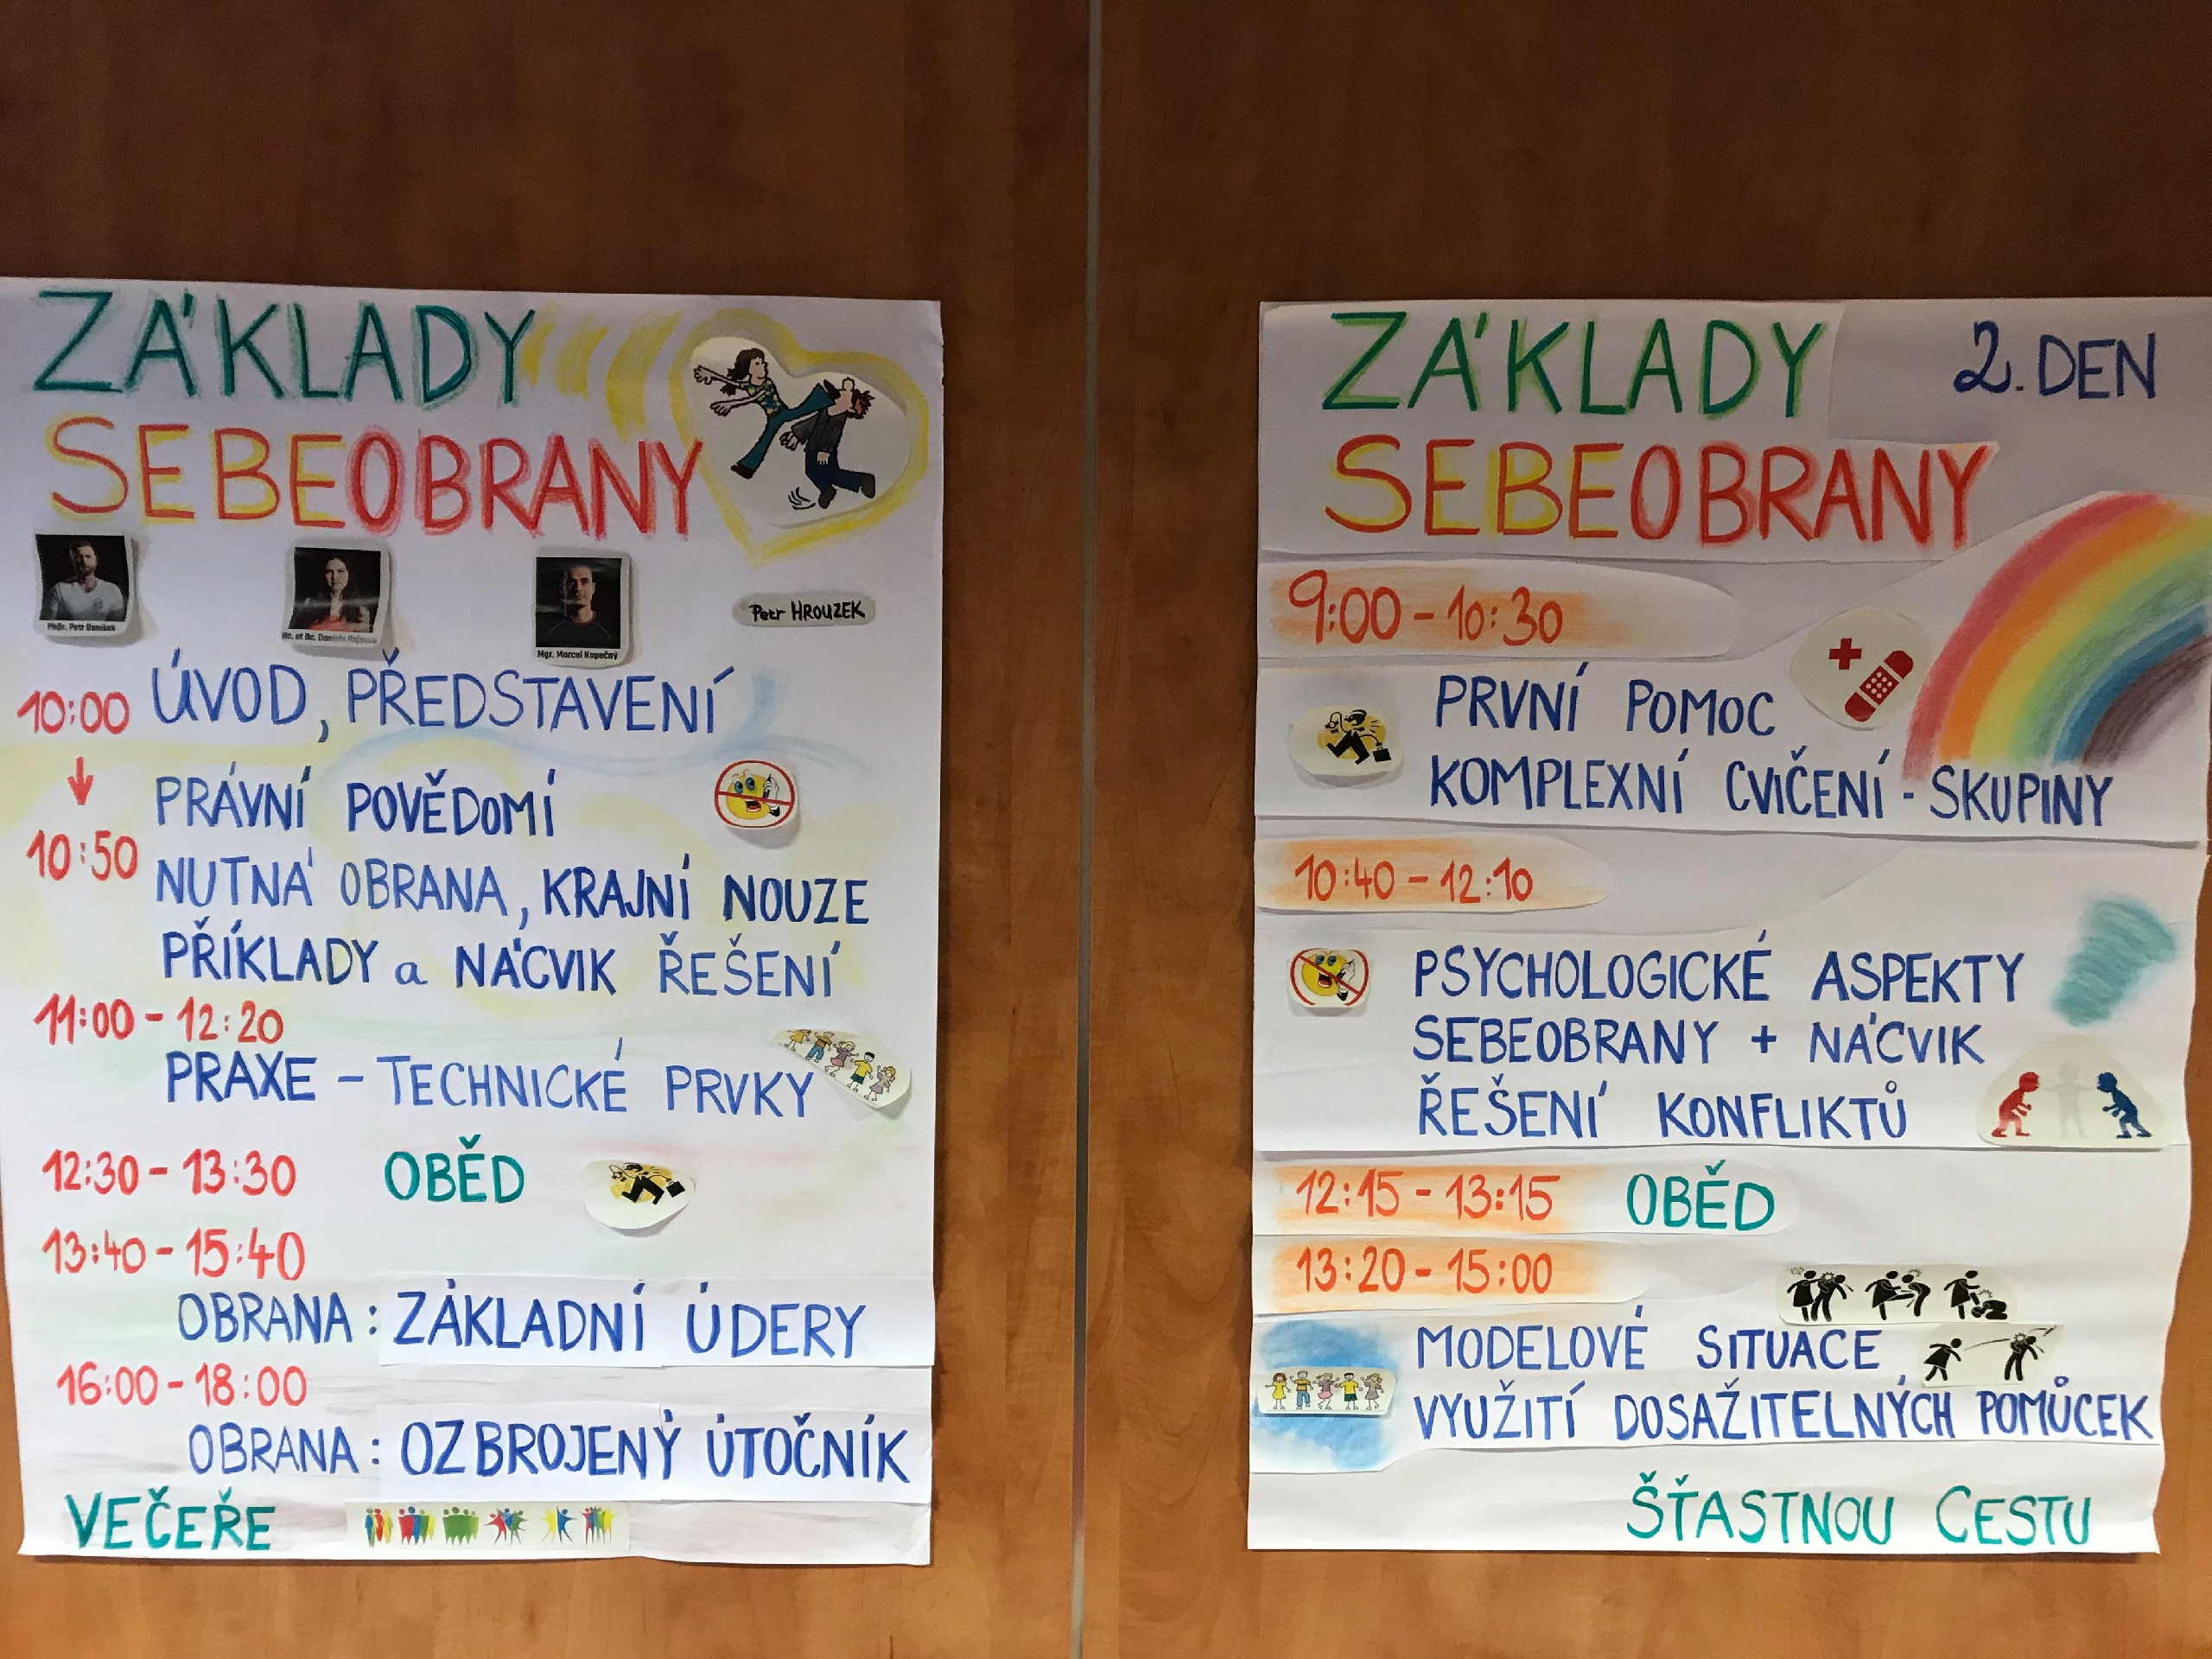 ZÁKLADY
SEBEOBRANY
PhDr. Petr
Bc. et Bc. Daniela
Mgr. Marcel Kopečný
Petr HROUZEK
10:00 ÚVOD, PŘEDSTAVENÍ
↓ PRÁVNÍ POVĚDOMÍ
10:50
NUTNÁ OBRANA, KRAJNÍ NOUZE
PŘÍKLADY a NÁCVIK ŘEŠENÍ
11:00 - 12:20
PRAXE - TECHNICKÉ PRVKY
12:30 - 13:30 OBĚD
13:40 - 15:40
OBRANA: ZÁKLADNÍ ÚDERY
16:00 - 18:00
OBRANA: OZBROJENÝ ÚTOČNÍK
VEČEŘE
ZÁKLADY 2. DEN
SEBEOBRANY
9:00 - 10:30
PRVNÍ POMOC
KOMPLEXNÍ CVIČENÍ - SKUPINY
10:40 - 12:10
PSYCHOLOGICKÉ ASPEKTY
SEBEOBRANY + NÁCVIK
ŘEŠENÍ KONFLIKTŮ
12:15 - 13:15 OBĚD
13:20 - 15:00
MODELOVÉ SITUACE,
VYUŽITÍ DOSAŽITELNÝCH POMŮCEK
ŠŤASTNOU CESTU